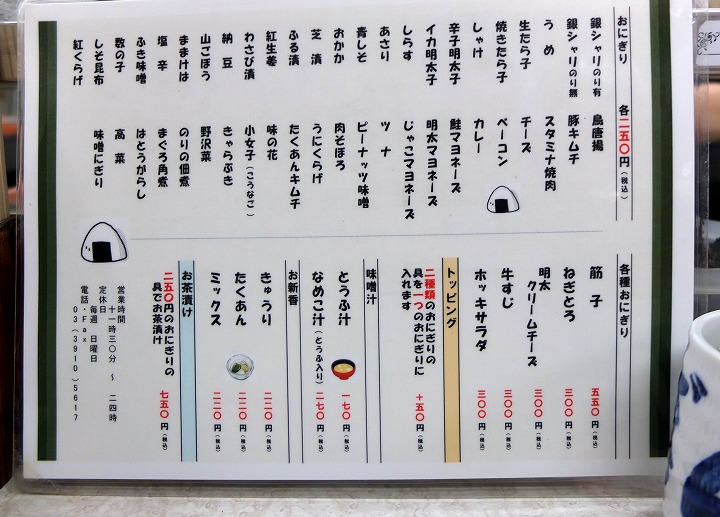 おにぎり 各二五〇円（税込）
銀シャリのり有
銀シャリのり無
うめ
生たら子
焼きたら子
しゃけ
辛子明太子
イカ明太子
しらす
あさり
青しそ
おかか
芝漬
ふる漬
紅生姜
わさび漬
納豆
山ごぼう
ままけは
塩辛
ふき味噌
数の子
しそ昆布
紅くらげ
鳥唐揚
豚キムチ
スタミナ焼肉
チーズ
ベーコン
カレー
鮭マヨネーズ
明太マヨネーズ
じゃこマヨネーズ
ツナ
ピーナッツ味噌
肉そぼろ
うにくらげ
たくあんキムチ
味の花
小女子（こうなご）
きゃらぶき
野沢菜
のりの佃煮
まぐろ角煮
はとうがらし
高菜
味噌にぎり
各種おにぎり
筋子 五五〇円（税込）
ねぎとろ 三〇〇円（税込）
明太クリームチーズ 三〇〇円（税込）
牛すじ 三〇〇円（税込）
ホッキサラダ 三〇〇円（税込）
トッピング
二種類のおにぎりの
具を一つのおにぎりに
入れます ＋五〇円（税込）
味噌汁
とうふ汁 一七〇円（税込）
なめこ汁（とうふ入り） 二七〇円（税込）
お新香
きゅうり 二二〇円（税込）
たくあん 二二〇円（税込）
ミックス 二二〇円（税込）
お茶漬け
二五〇円のおにぎりの
具でお茶漬け 七五〇円（税込）
営業時間
十一時三〇分 〜 二四時
定休日
毎週 日曜日
電話・Fax
03（3910）5617